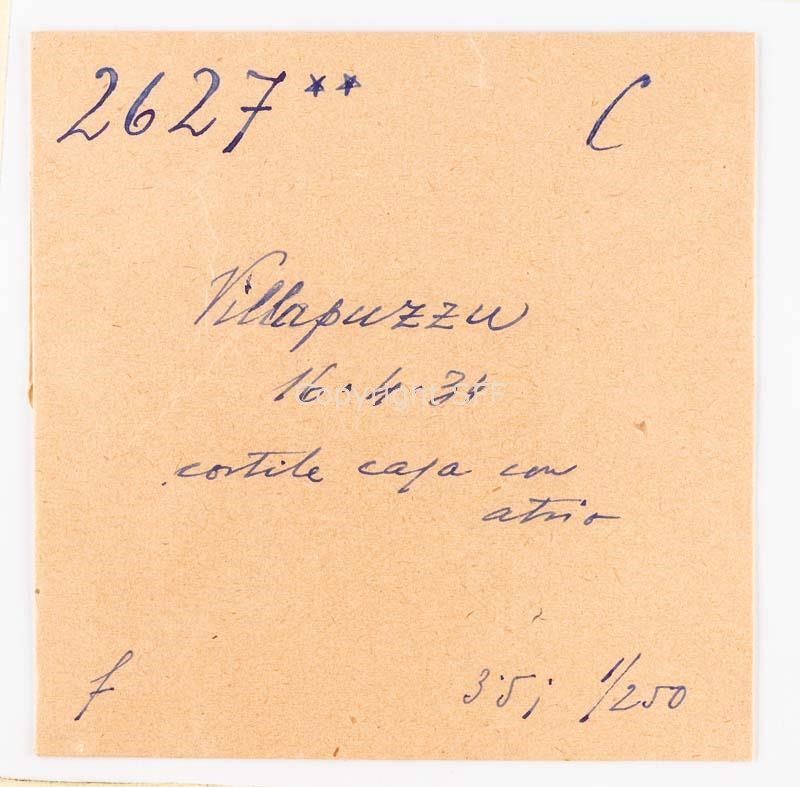 2627 ** C
Villapuzzu
16·4·34
Copyright SFF
cortile casa con
atrio
f 3·5; 1/250